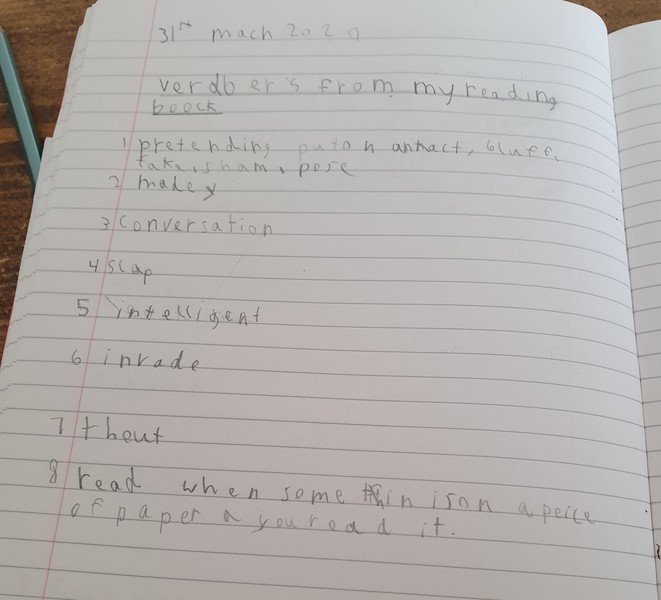 31st mach 2020
verdber's from my reading
boock
1 pretending put on an act, bluff,
fake, sham, pose
2 madey
3 conversation
4 slap
5 intelligent
6 invade
7 thout
8 read when some thin is on a peice
of paper a you read it.